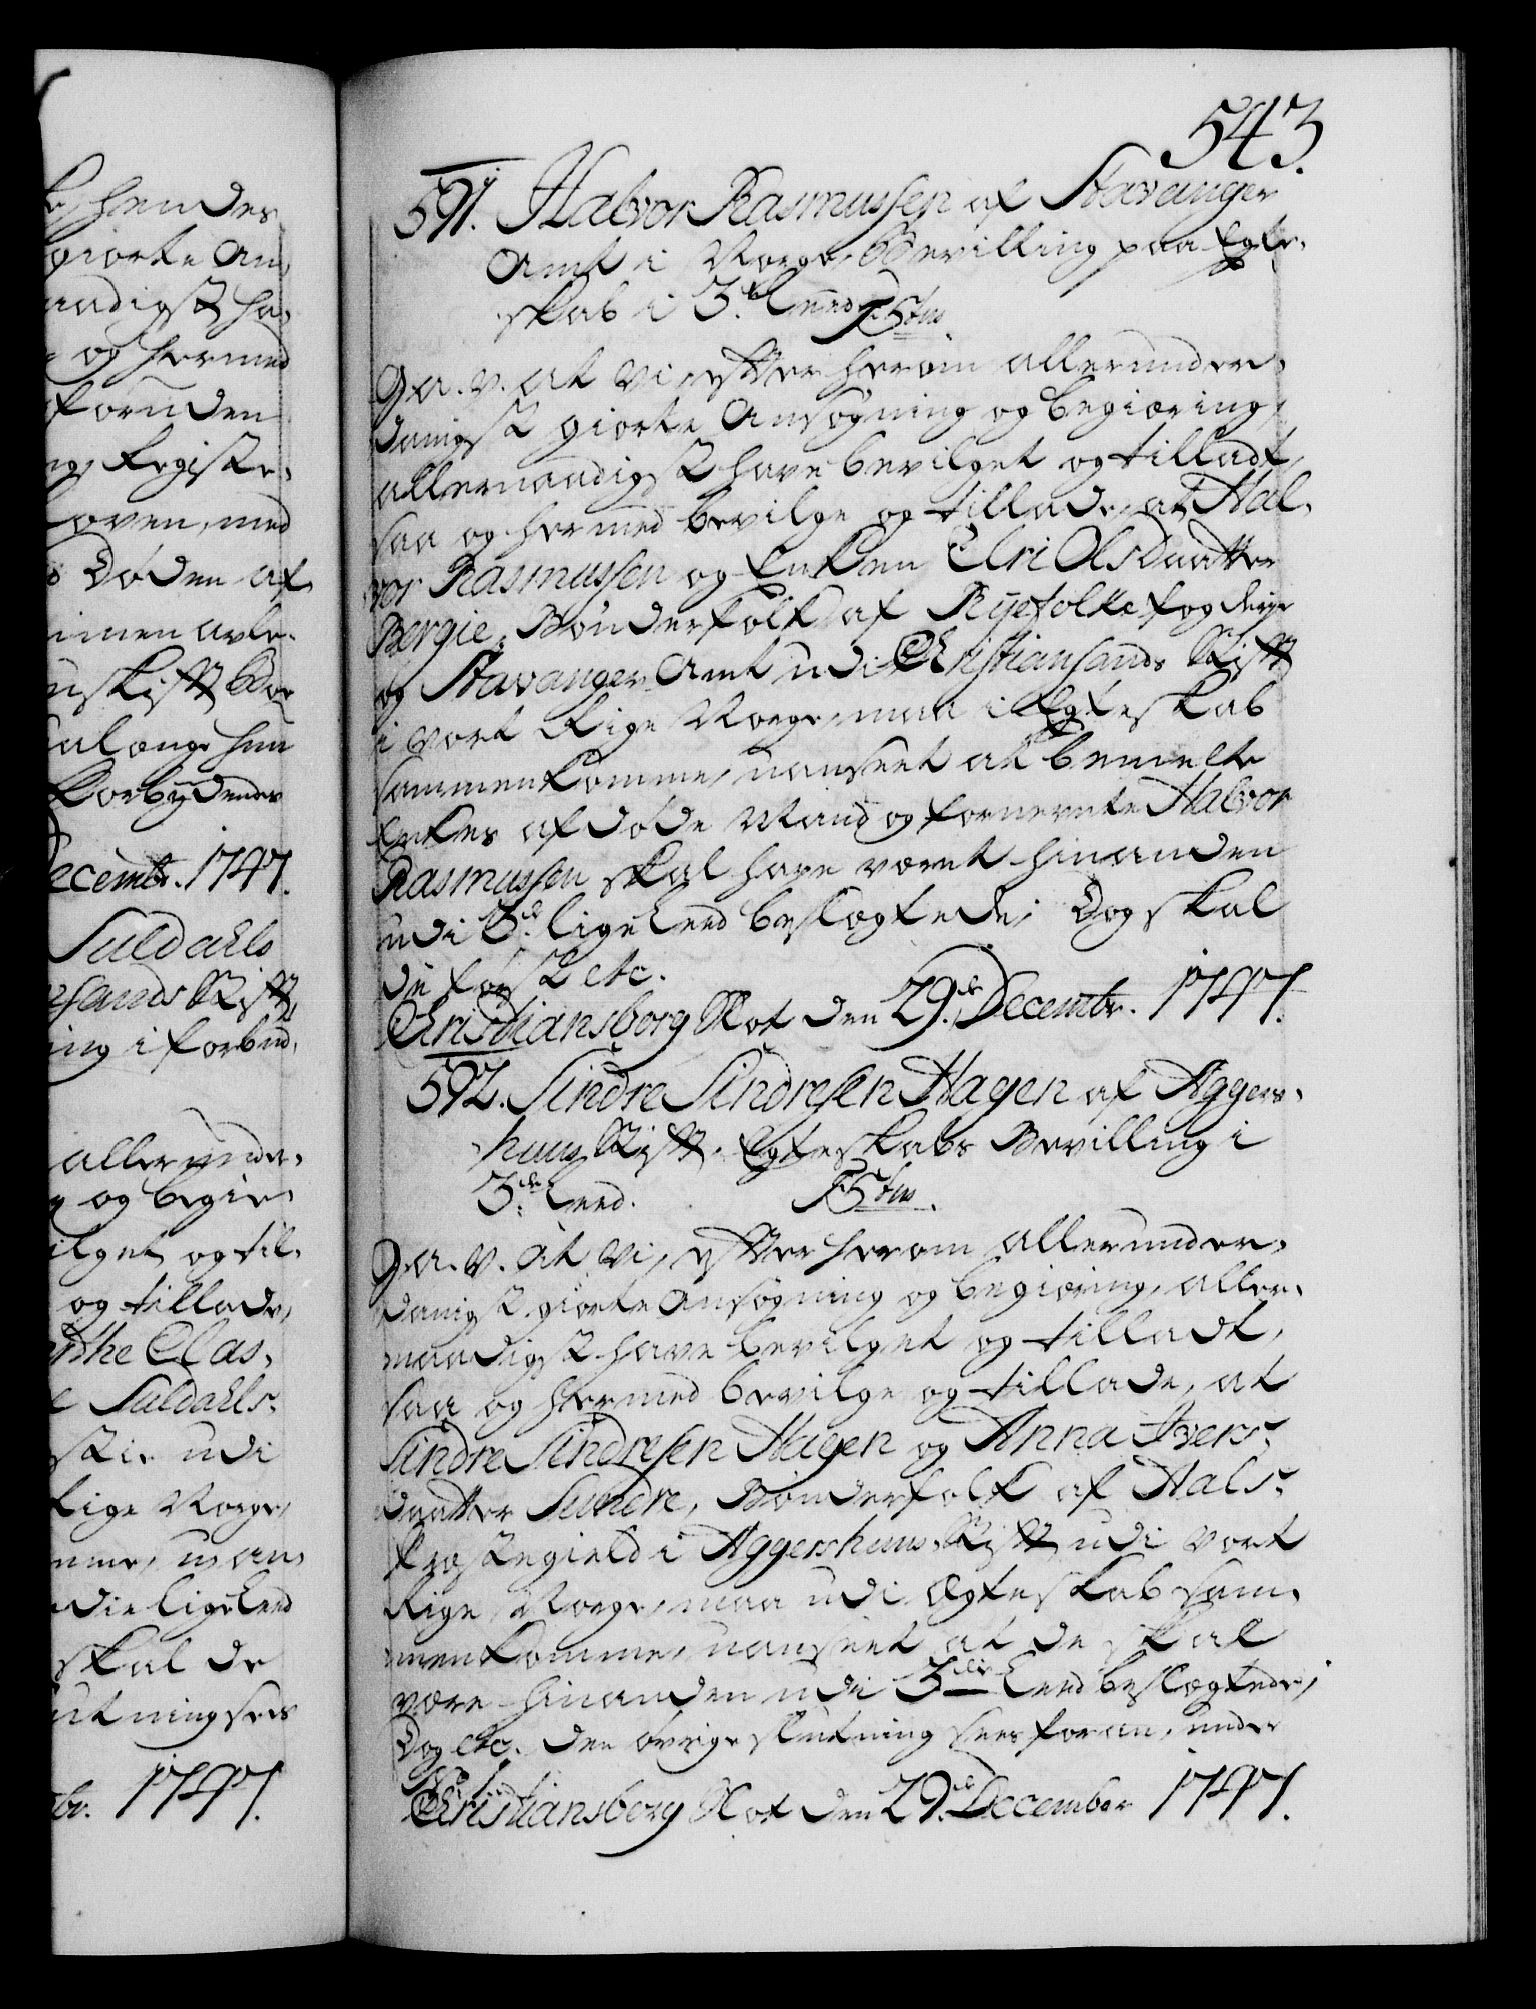 543.
591. Halvor Rasmussen af Stavanger
Amt i Norge, Bevilling paa Egte-
skab i 3die Leed
G. A. V. at Vi, efter herom allerunder-
danigst giorte Ansøgning og begiæring,
allernaadigst have bevilget og tilladt,
saa og hermed bevilge og tillade, at Hal-
vor Rasmussen og Enken Elri Olsdaatter
Bergie, Bønderfolk af Ryefolke fogderie
og Stavanger Amt udi Christiansands Stift
i vort Rige Norge, maa i Egteskab
sammenkomme, uanseet at bemelte
Enkes afdøde Mand og fornevnte Halvor
Rasmussen skal have været hinanden
udi 3die lige Leed beslægtede; Dog skal
de først etc.
Christiansborg Slot den 29de Decembr. 1747.
592. Sindre Sindresen Hagen af Aggers-
huus Stift, Egteskabs Bevilling i
3die Leed.
G. A. V. at Vi, efter herom allerunder-
danigst giorte Ansøgning og begiæring, aller-
naadigst have bevilget og tilladt,
saa og hermed bevilge og tillade, at
Sindre Sindresen Hagen og Anna Ivers-
daatter Sundre, Bønderfolk af Hals-
Præstegield i Aggershuus Stift udi vort
Rige Norge, maa udi Ægteskab sam-
menkomme, uanseet at de skal
være hinanden udi 3die Leed beslægtede;
Dog etc. den øvrige slutning sees foran, under
Christiansborg Slot den 29de December 1747.
hendes
giorte An-
naadigst ha-
og hermed
foruden
Registe-
Loven, med
Døden af-
sammen avle-
længe hun
Forbydende
Decembr. 1747.
Suldahls
sands Stift,
ing i forbud,
allerunder-
og begiæ-
ilget og til-
og tillade,
Clas-
Suldahls-
udi
Rige Norge,
mme, uan-
3die lige Leed
skal de
slutning sees
br. 1747.